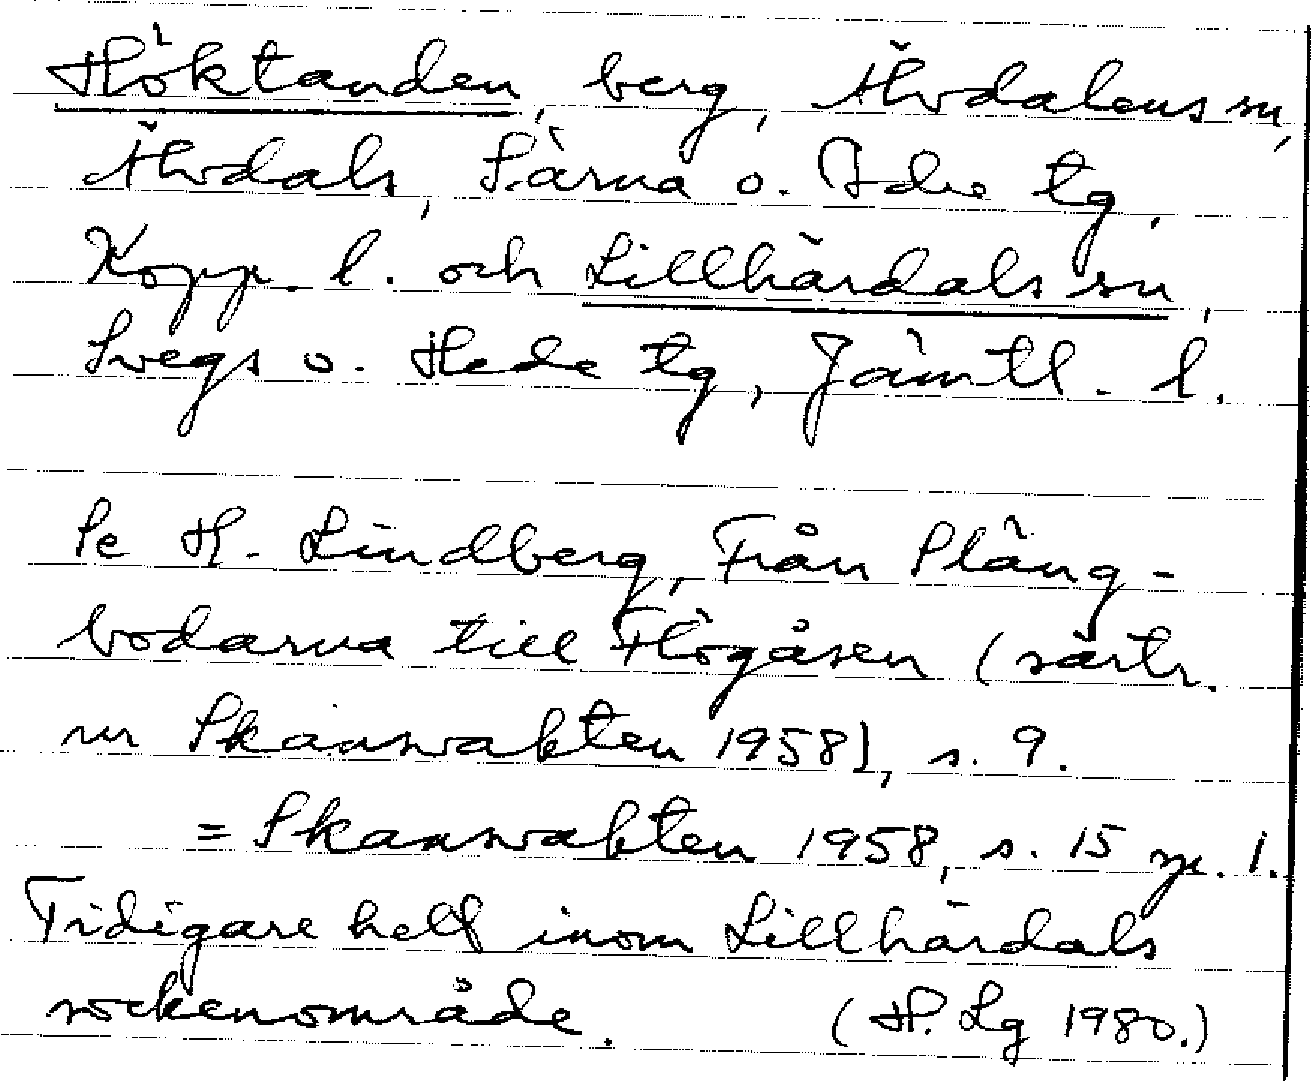 Höktanden, berg, Älvdalens sn,
Älvdals, Särna o. Idre tg,
Kopp. l. och Lillhärdals sn,
Svegs o. Hede tg, Jämtl. l.
Se H. Lindberg, Från Pläng-
bodarna till Högåsen (särtr.
ur Skanswakten 1958), s. 9.
= Skanswakten 1958, s. 15 sp. 1.
Tidigare helt inom Lillhärdals
sockenområde. (H. Lg 1980.)